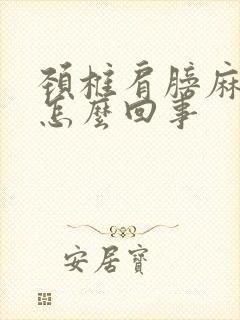 頚椎肩膀麻
怎麽回事
安居寶